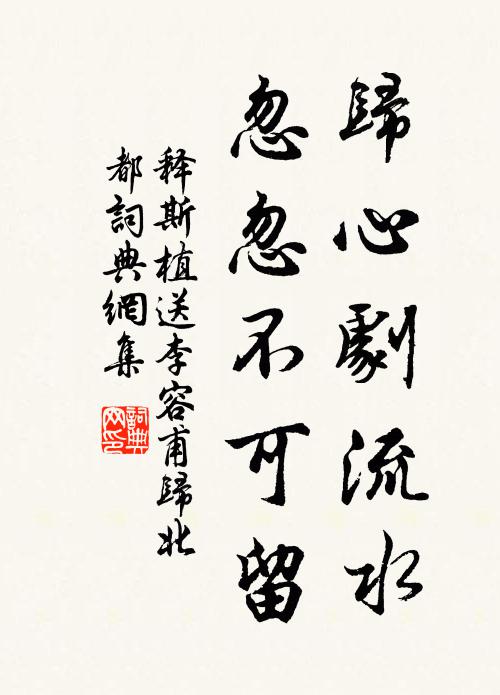 歸心劇流水
忽忽不可留
释斯植送李容甫歸北
都詞典網集
詞典网印